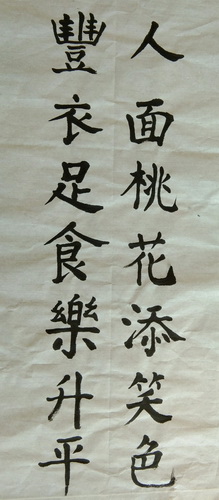 人面桃花添笑色
豐衣足食樂升平